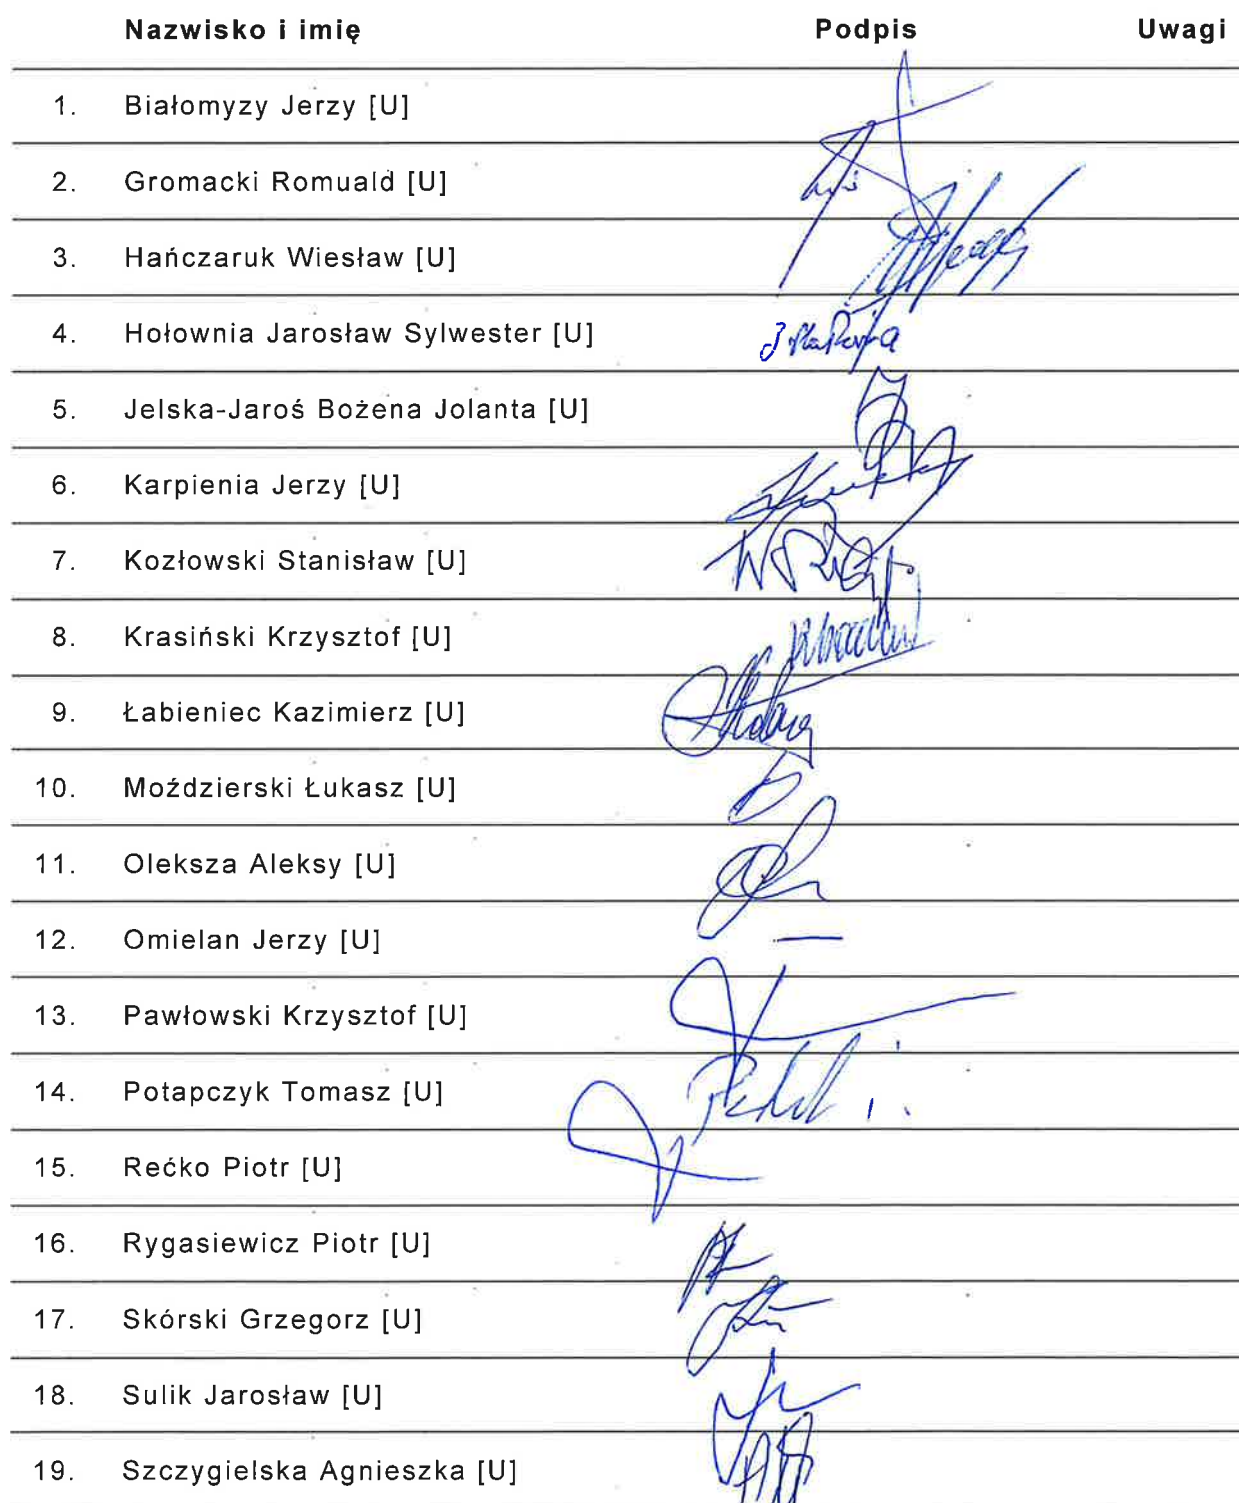 Nazwisko i imię Podpis Uwagi
1. Białomyzy Jerzy [U]
2. Gromacki Romuald [U]
3. Hańczaruk Wiesław [U]
4. Hołownia Jarosław Sylwester [U]
5. Jelska-Jaroś Bożena Jolanta [U]
6. Karpienia Jerzy [U]
7. Kozłowski Stanisław [U]
8. Krasiński Krzysztof [U]
9. Łabieniec Kazimierz [U]
10. Moździerski Łukasz [U]
11. Oleksza Aleksy [U]
12. Omielan Jerzy [U] —
13. Pawłowski Krzysztof [U]
14. Potapczyk Tomasz [U]
15. Rećko Piotr [U]
16. Rygasiewicz Piotr [U]
17. Skórski Grzegorz [U]
18. Sulik Jarosław [U]
19. Szczygielska Agnieszka [U]